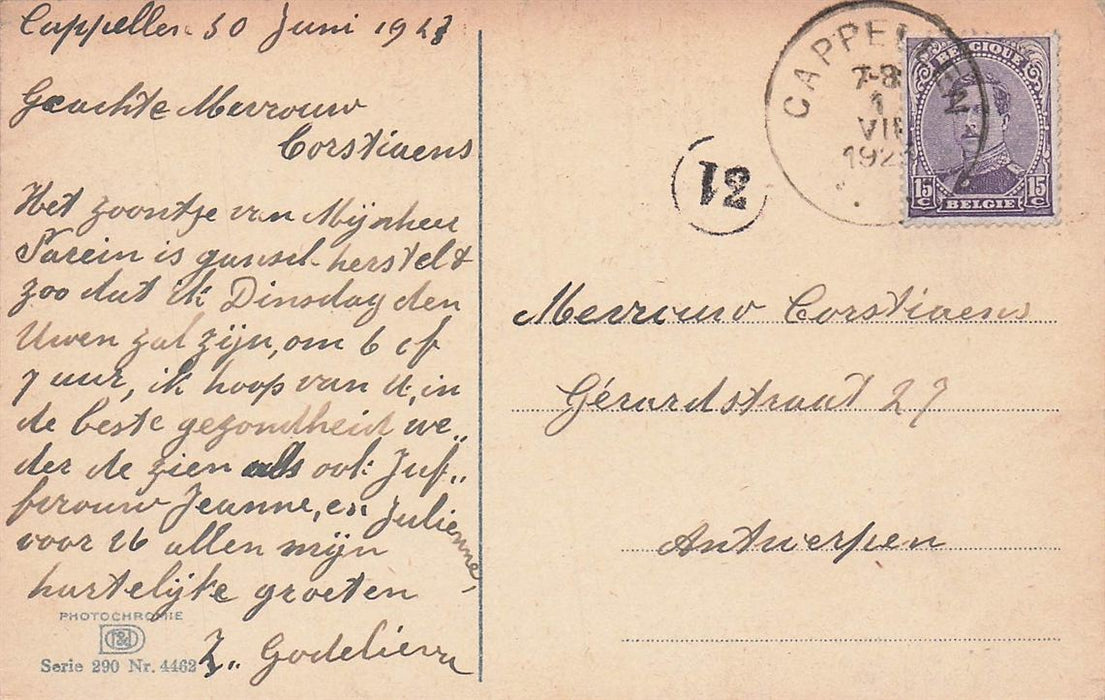 Cappellen 30 Juni 192
Geachte Mevrouw
Corstiaens
Het zoontje van Mijnheer
is gansch hersteld
zoo dat ik Dinsdag den
Uwen zal zijn, om 6 of
7 uur, ik hoop van U, in
de beste gezondheid we„
der de zien als ook Juf„
frouw Jeanne, en Julienne,
voor U allen mijn
hartelijke groeten
Z„ Godelieva
PHOTOCHROMIE
Serie 290 Nr. 4462
CAPPELLEN
7-8
1
VII
192
BELGIQUE
15 C
15 C
BELGIE
21
Mevrouw Corstiaens
Gérardstraat 27
Antwerpen